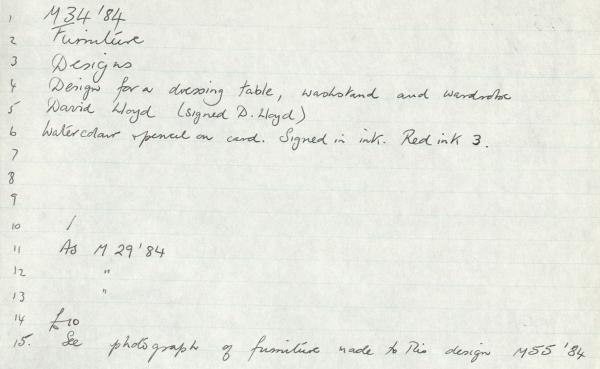 1 M34 '84
2 Furniture
3 Designs
4 Design for a dressing table, washstand and wardrobe
5 David Lloyd (signed D. Lloyd)
6 Watercolour + pencil on card. Signed in ink. Red ink 3.
7
8
9
10 /
11 As M 29 '84
12 "
13 "
14 £10
15. See photograph of furniture made to this design M55 '84